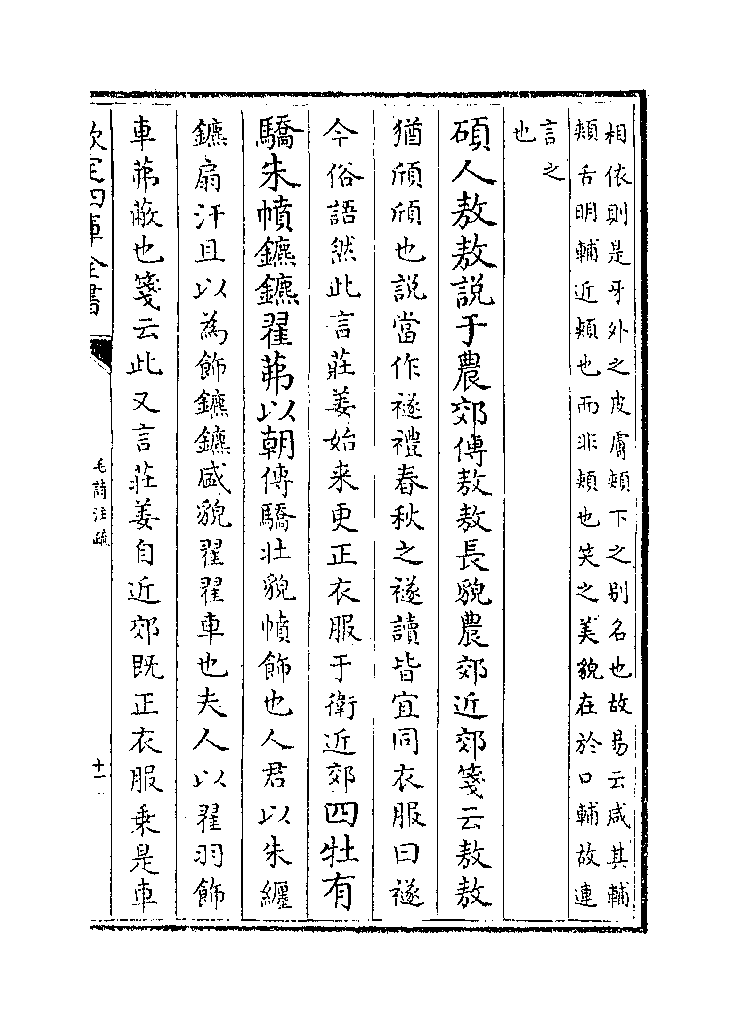 相依則是牙外之皮膚頰下之别名也故易云咸其輔
頰舌明輔近頰也而非頰也笑之美貌在於口輔故連
言之
也
碩人敖敖説于農郊傳敖敖長貌農郊近郊箋云敖敖
猶頎頎也説當作襚禮春秋之襚讀皆宜同衣服曰襚
今俗語然此言莊姜始来更正衣服于衛近郊四牡有
驕朱幩鑣鑣翟茀以朝傳驕壮貌幩飾也人君以朱纏
鑣扇汗且以為飾鑣鑣盛貌翟翟車也夫人以翟羽飾
車茀蔽也箋云此又言莊姜自近郊既正衣服乗是車
欽定四庫全書
毛詩注疏
十一